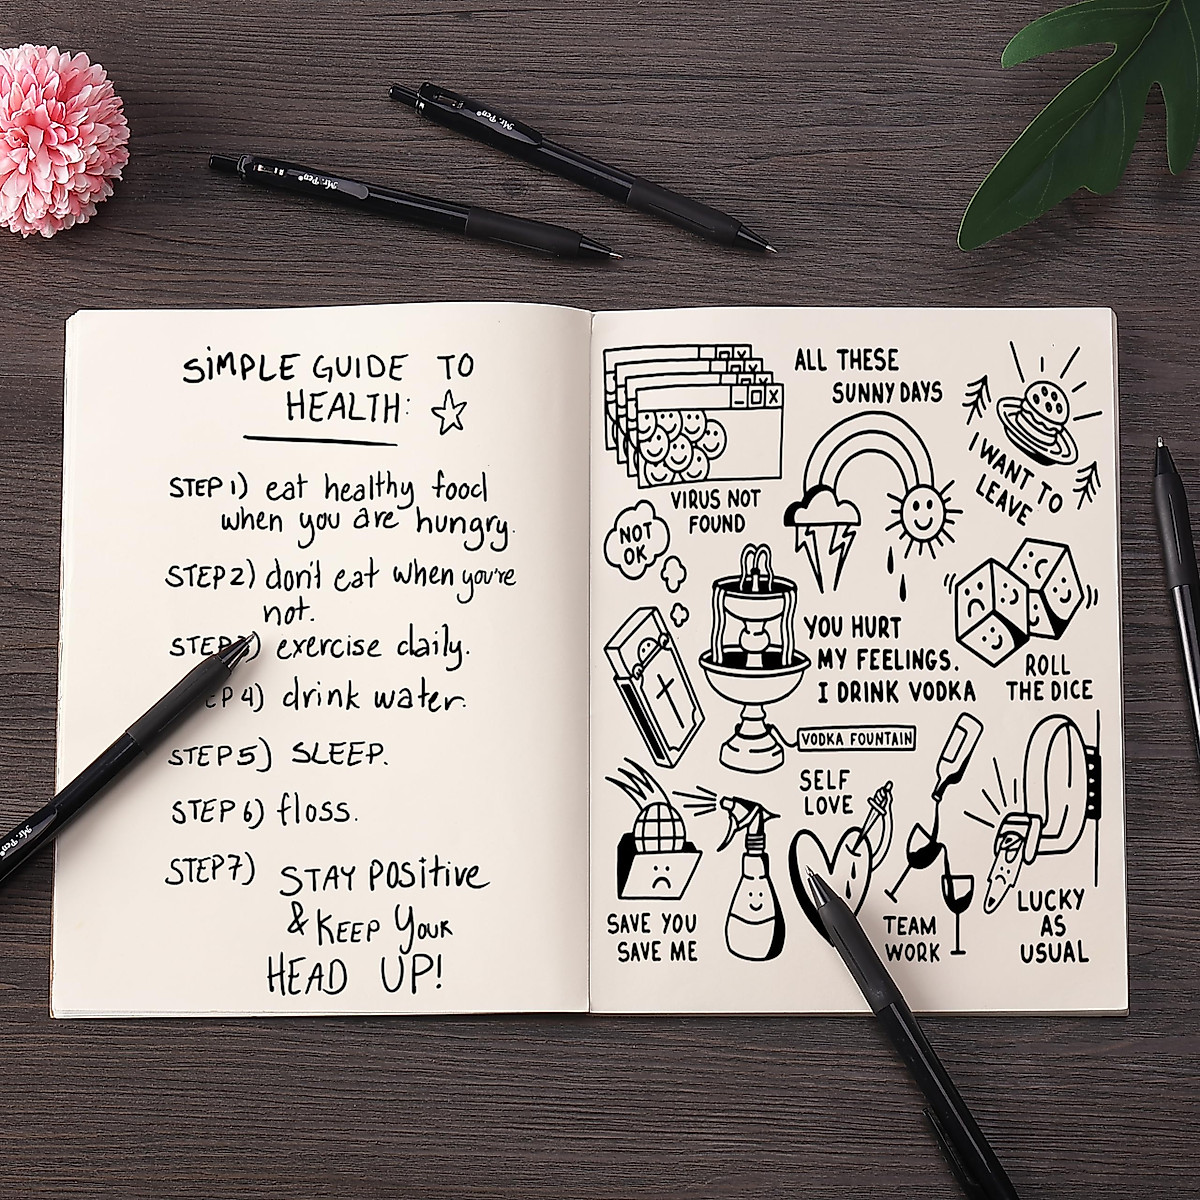 Mr. Pen®
Mr. Pen®
SiMPLE GUIDE TO
HEALTH:
STEP 1) eat healthy food
when you are hungry.
STEP 2) don't eat when you're
not.
STEP 3) exercise daily.
STEP 4) drink water.
STEP 5) SLEEP.
STEP 6) floss.
STEP 7) STAY POSitive
& KEEP YouR
HEAD UP!
Mr. Pen®
VIRUS NOT
FOUND
ALL THESE
SUNNY DAYS
I WANT TO
LEAVE
NOT
OK
YOU HURT
MY FEELINGS.
I DRINK VODKA
VODKA FOUNTAIN
ROLL
THE DICE
SELF
LOVE
SAVE YOU
SAVE ME
TEAM
WORK
LUCKY
AS
USUAL